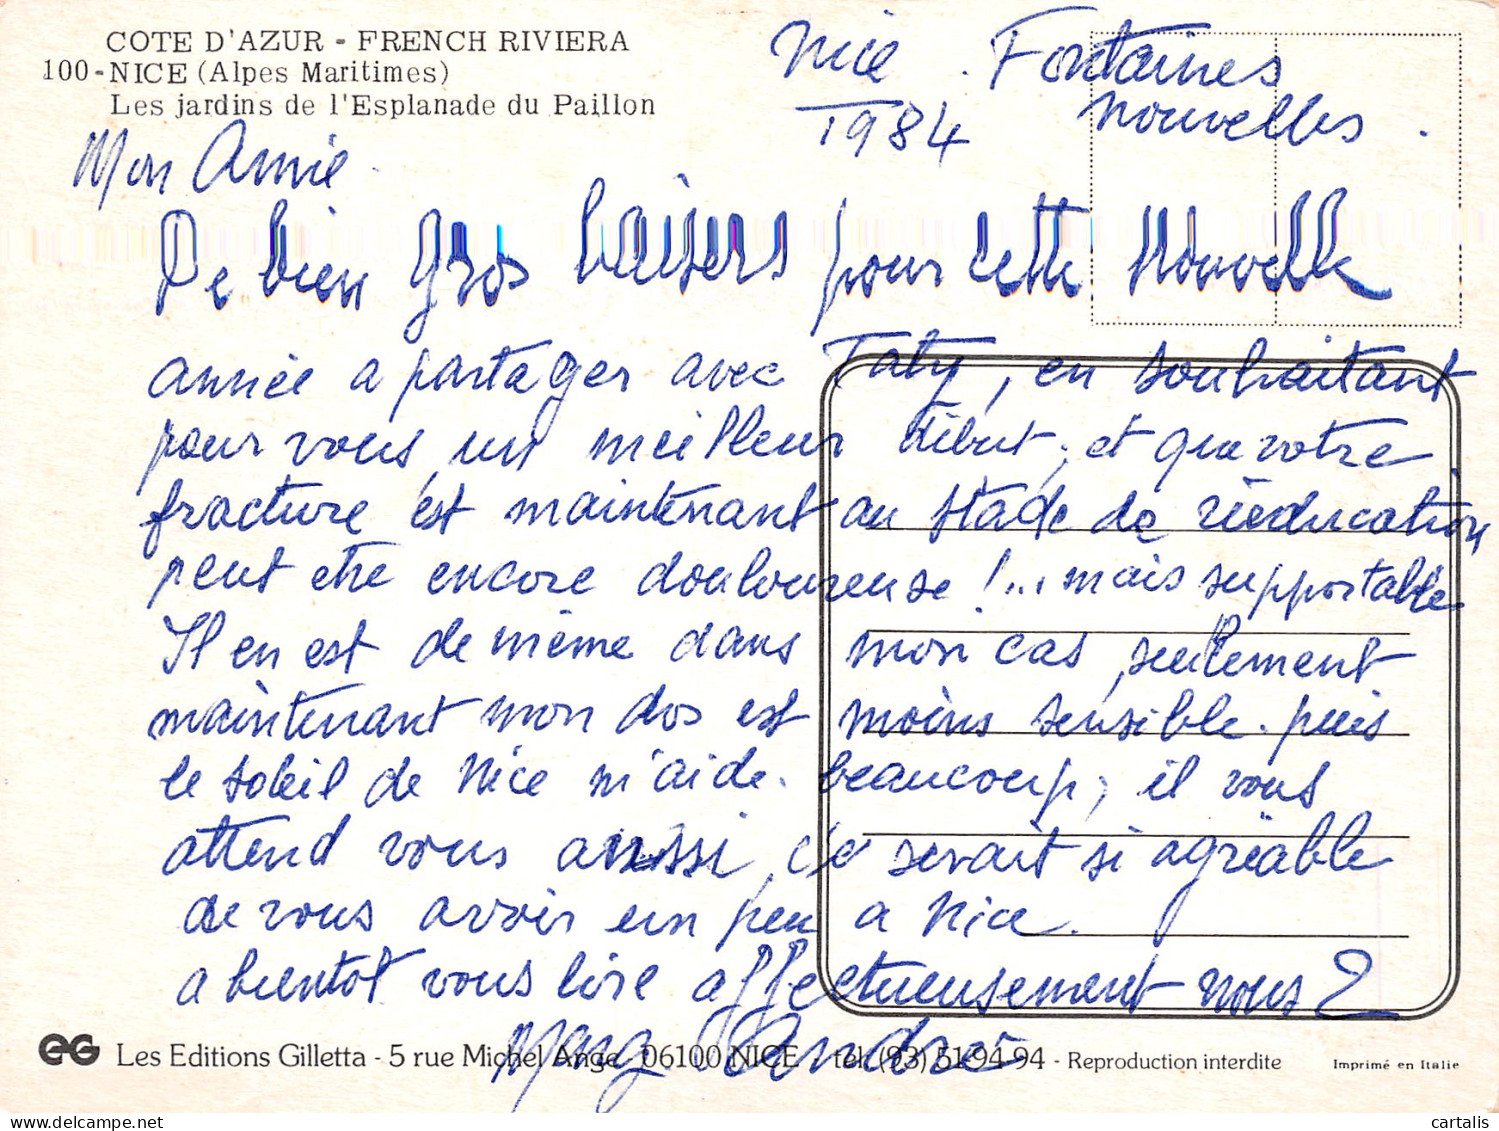 COTE D'AZUR - FRENCH RIVIERA
100-NICE (Alpes Maritimes)
Les jardins de l'Esplanade du Paillon
Nice . Fontaines
1984 nouvelles .
Mon Amie
De bien gros baisers pour cette Nouvelle
année a partager avec Taty, en souhaitant
pour vous un meilleur début, et que votre
fracture est maintenant au stade de rééducation
peut etre encore douloureuse !... mais supportable
Il en est de même dans mon cas, seulement
maintenant mon dos est moins sensible. puis
le soleil de Nice m'aide. beaucoup, il vous
attend vous aussi, ce serait si agréable
de vous avoir un peu a Nice.
a bientot vous lire affectueusement nous 2
André
EG Les Editions Gilletta - 5 rue Michel Ange - 06100 NICE - tél. (93) 51-94-94 - Reproduction interdite
Imprimé en Italie
cartalis
www.delcampe.net